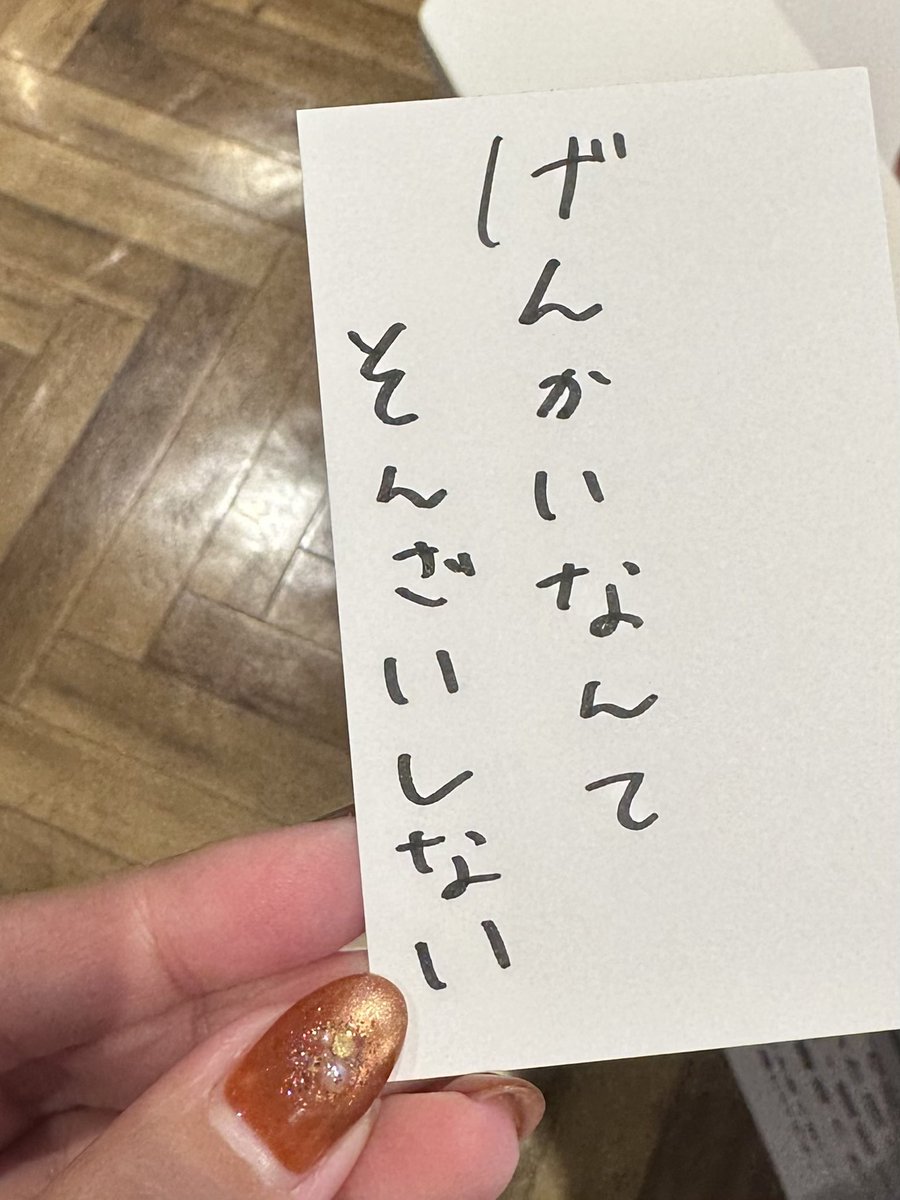 げんかいなんて
そんざいしない